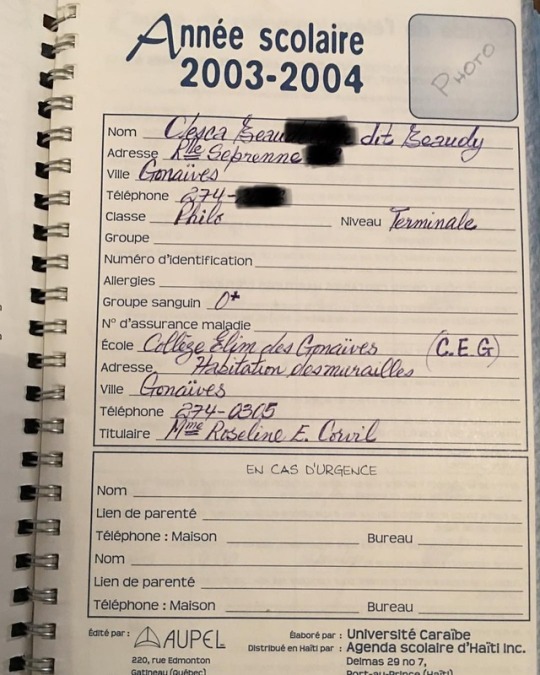 Année scolaire
2003-2004
PHOTO
Nom Clesca dit Beaudy
Adresse Rlle Seprenne
Ville Gonaïves
Téléphone 274-
Classe Philo Niveau Terminale
Groupe
Numéro d'identification
Allergies
Groupe sanguin O+
N° d'assurance maladie
École Collège Élim des Gonaïves (C.E.G)
Adresse Habitation desmurailles
Ville Gonaïves
Téléphone 274-0305
Titulaire Mme Roseline E. Corvil
EN CAS D'URGENCE
Nom
Lien de parenté
Téléphone : Maison Bureau
Nom
Lien de parenté
Téléphone : Maison Bureau
Édité par : AUPEL Élaboré par : Université Caraïbe
Distribué en Haïti par : Agenda scolaire d'Haïti Inc.
220, rue Edmonton Delmas 29 no 7,
Gatineau (Québec) Port-au-Prince (Haïti)